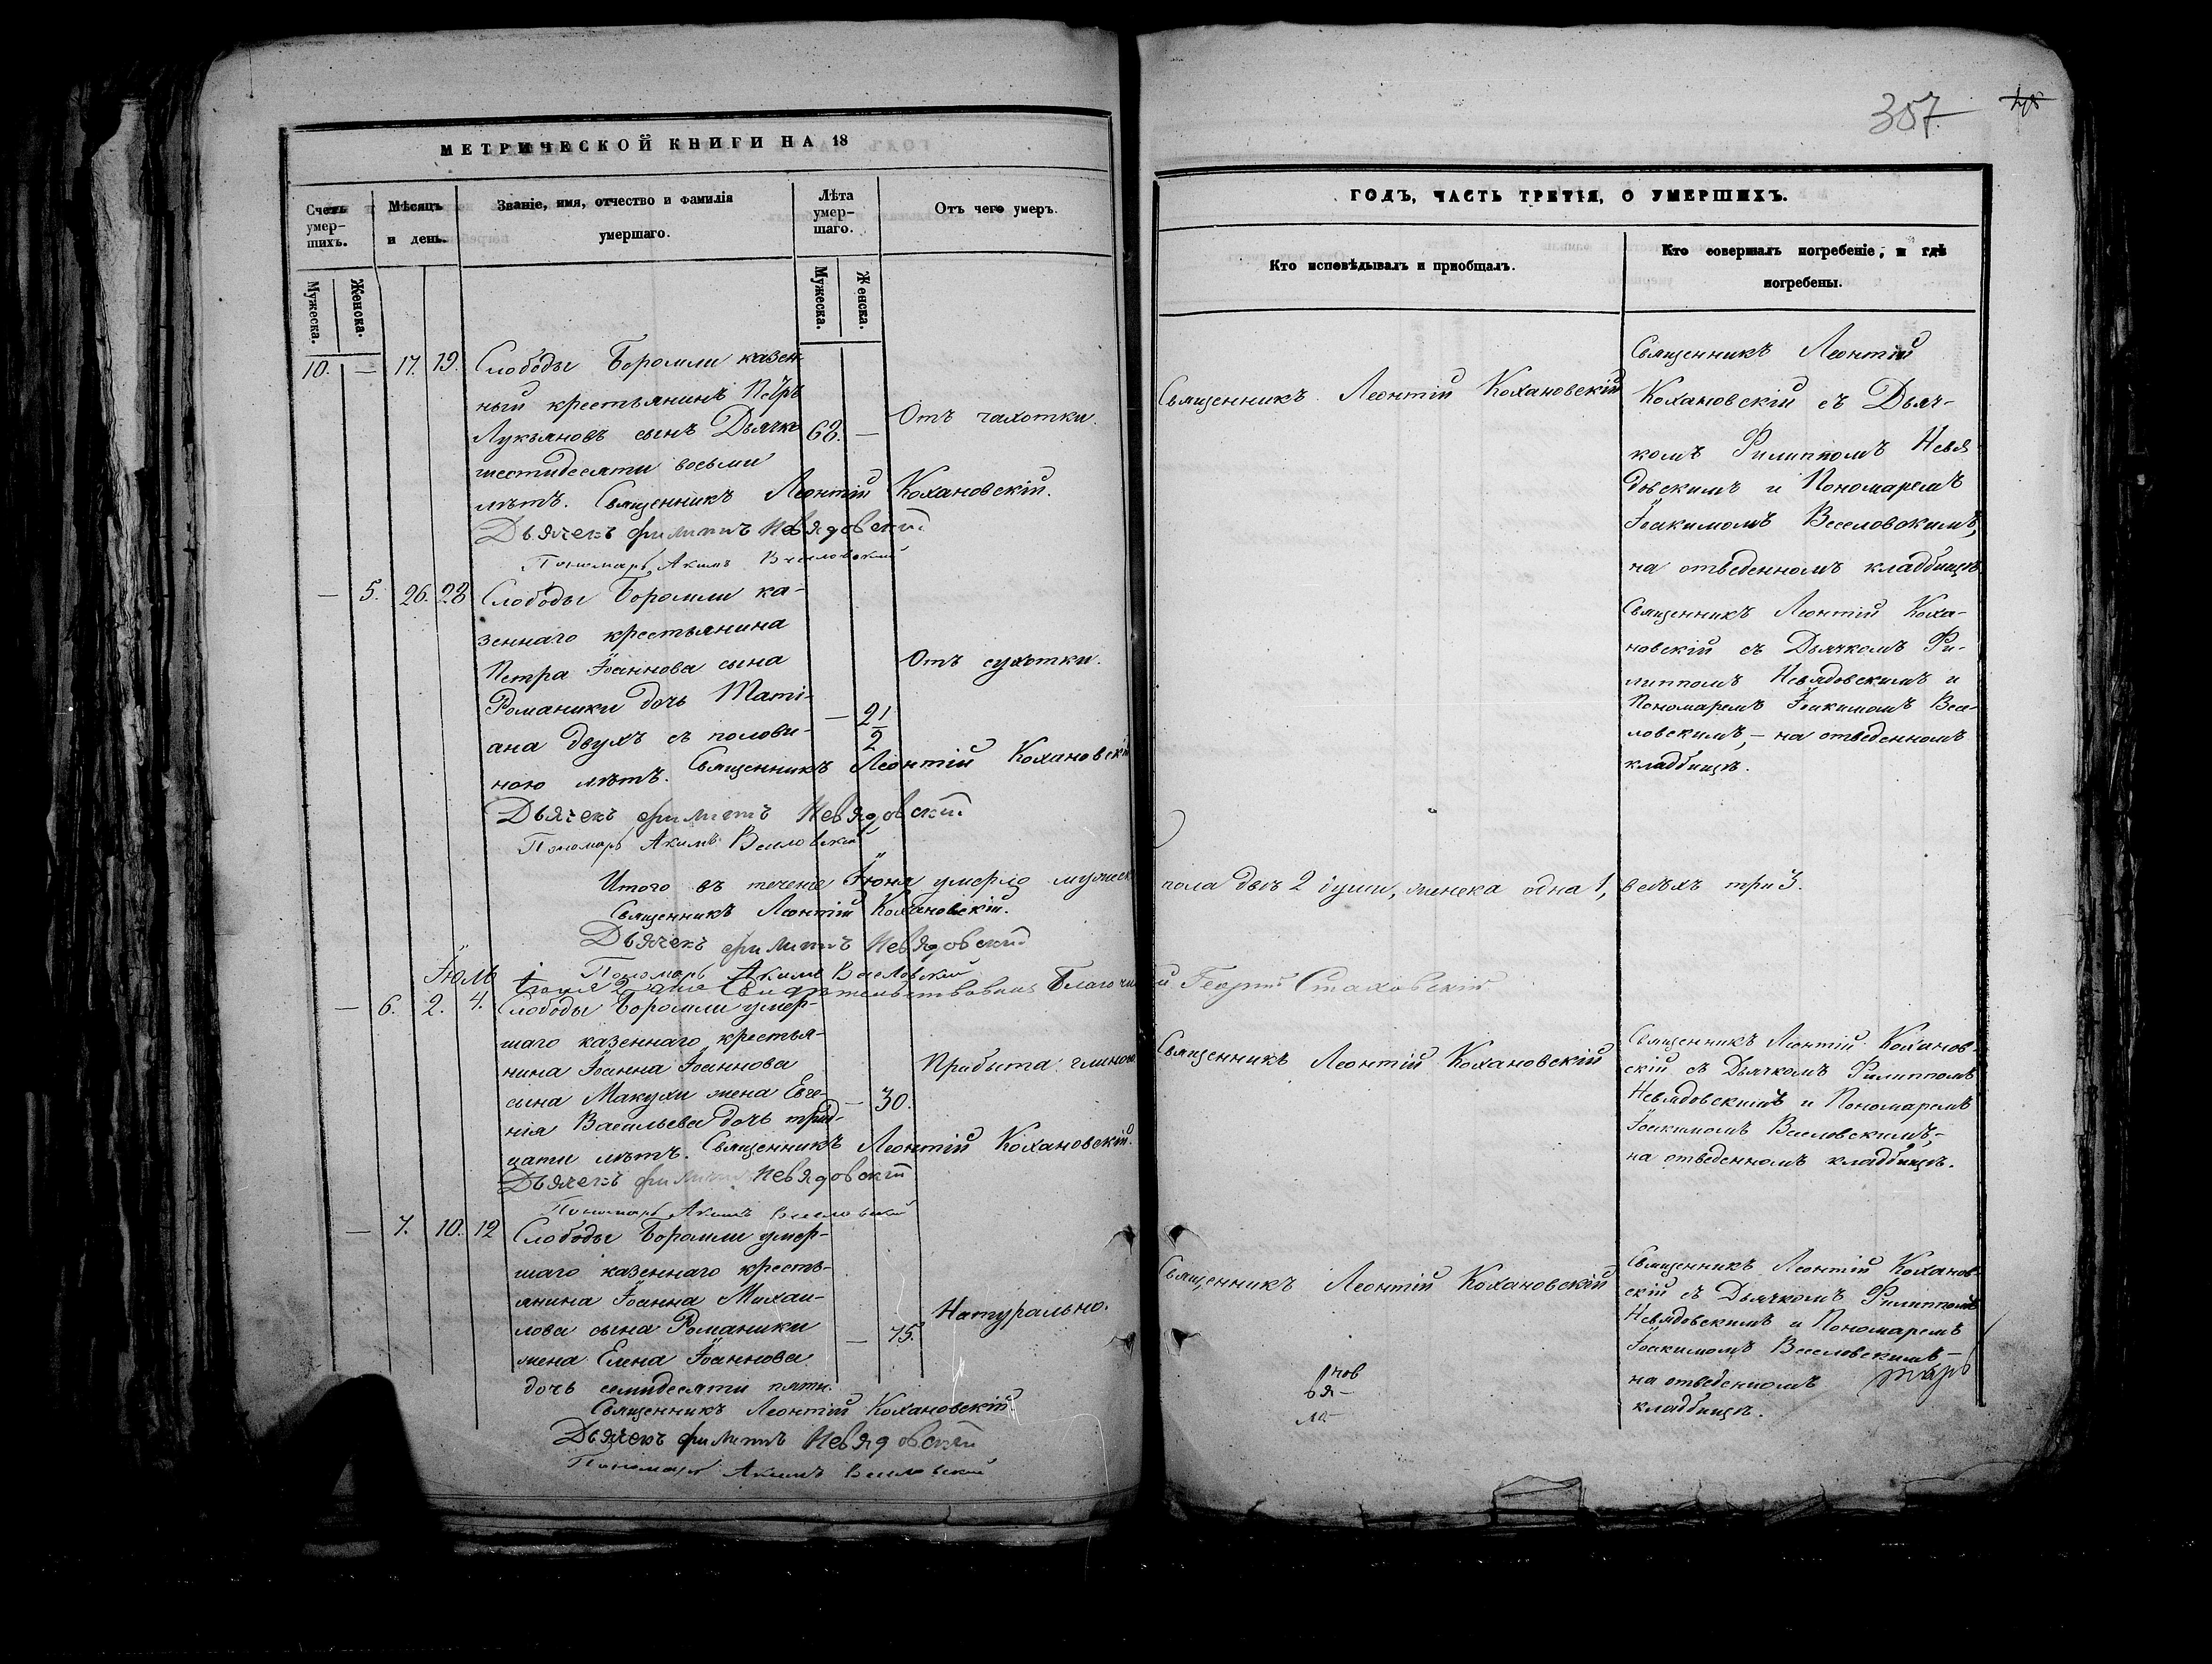 МЕТРИЧЕСКОЙ КНИГИ НА 18
Счетъ умер-шихъ.
Мѣсяцъ и день.
Званіе, имя, отчество и фамилія умершаго.
Лѣта умер-шаго.
Отъ чего умеръ.
Мужеска.
Женска.
Мужеска.
Женска.
10. — 17. 19. Слободы Боромли казен-
ный крестьянинъ Петръ
Лукьяновъ сынъ Дьячко 68. — Отъ чахотки.
шестидесяти восьми
лѣтъ. Священникъ Леонтій Кохановскій.
Дьячекъ Филиппъ Невядовскій
Пономарь Акимъ Веселовскій
— 5. 26. 28 Слободы Боромли ка-
зеннаго крестьянина
Петра Іоаннова сына Отъ сухотки.
Романики дочь Таті-
ана двухъ съ полови- — 2 1/2
ною лѣтъ. Священникъ Леонтій Кохановскій
Дьячекъ Филиппъ Невядовскій
Пономарь Акимъ Веселовскій
Итого въ теченіе Іюня умерло мужеск
Священникъ Леонтій Кохановскій.
Дьячекъ Филиппъ Невядовскій
Пономарь Акимъ Веселовскій
Іюль
2 дня Свидѣтельствовалъ Благочин
— 6. 2. 4. Слободы Боромли умер-
шаго казеннаго крестья-
нина Іоанна Іоаннова Прибыта глиною
сына Макухи жена Евге- — 30.
нія Васильева дочь трид-
цати лѣтъ. Священникъ Леонтій Кохановскій.
Дьячекъ Филиппъ Невядовскій
Пономарь Акимъ Веселовскій
— 7. 10. 12 Слободы Боромли умер-
шаго казеннаго кресть-
янина Іоанна Михаи-
лова сына Романики — 75. Натурально.
жена Елена Іоаннова
дочь семидесяти пяти.
Священникъ Леонтій Кохановскій.
Дьячекъ Филиппъ Невядовскій
Пономарь Акимъ Веселовскій
357
ГОДЪ, ЧАСТЬ ТРЕТІЯ, О УМЕРШИХЪ.
Кто исповѣдывалъ и пріобщалъ.
Кто совершалъ погребеніе, и гдѣ погребены.
Священникъ Леонтій Кохановскій
Священникъ Леонтій
Кохановскій съ Дьяч-
комъ Филиппомъ Невя-
довскимъ и Пономаремъ
Іоакимомъ Веселовскимъ,
на отведенномъ кладбищѣ.
Священникъ Леонтій Коха-
новскій съ Дьячкомъ Фи-
липпомъ Невядовскимъ и
Пономаремъ Іоакимомъ Весе-
ловскимъ, — на отведенномъ
кладбищѣ.
пола двѣ 2 души, женска одна 1, всѣхъ три 3.
й Георгій Стаховскій
Священникъ Леонтій Кохановскій
Священникъ Леонтій Коханов-
скій съ Дьячкомъ Филиппомъ
Невядовскимъ и Пономаремъ
Іоакимомъ Веселовскимъ, —
на отведенномъ кладбищѣ.
Священникъ Леонтій Кохановскій
Священникъ Леонтій Коханов-
скій съ Дьячкомъ Филиппомъ
Невядовскимъ и Пономаремъ
Іоакимомъ Веселовскимъ —
на отведенномъ
кладбищѣ.